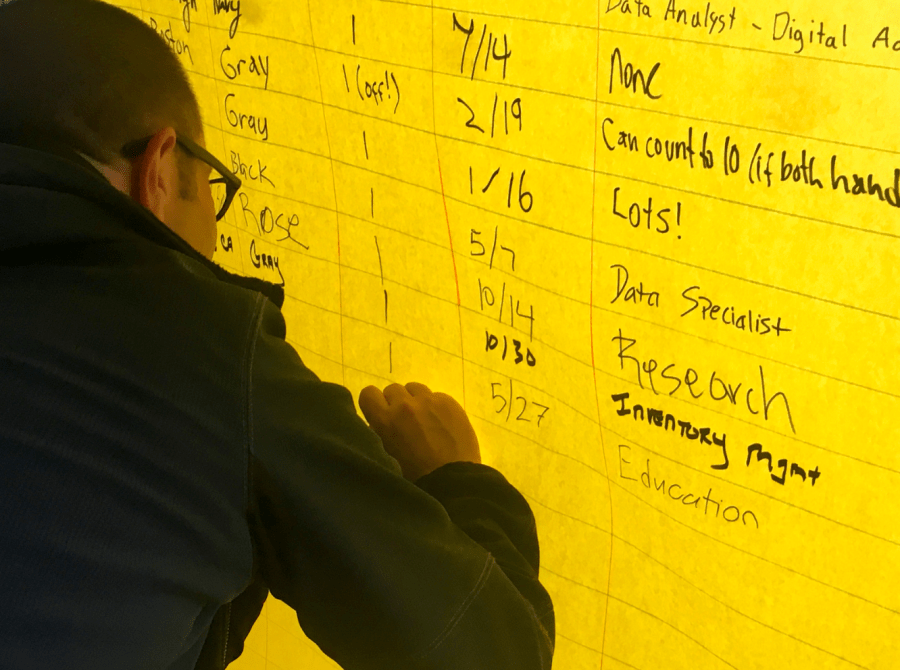 Data Analyst - Digital
Navy 1 7/14 None
Boston Gray 1 (off!) 2/19 Can count to 10 (if both hand
Gray 1 1/16 Lots!
Black 1 5/7 Data Specialist
Rose 1 10/14 Research
Gray 1 10/30 Inventory Mgmt
1 5/27 Education